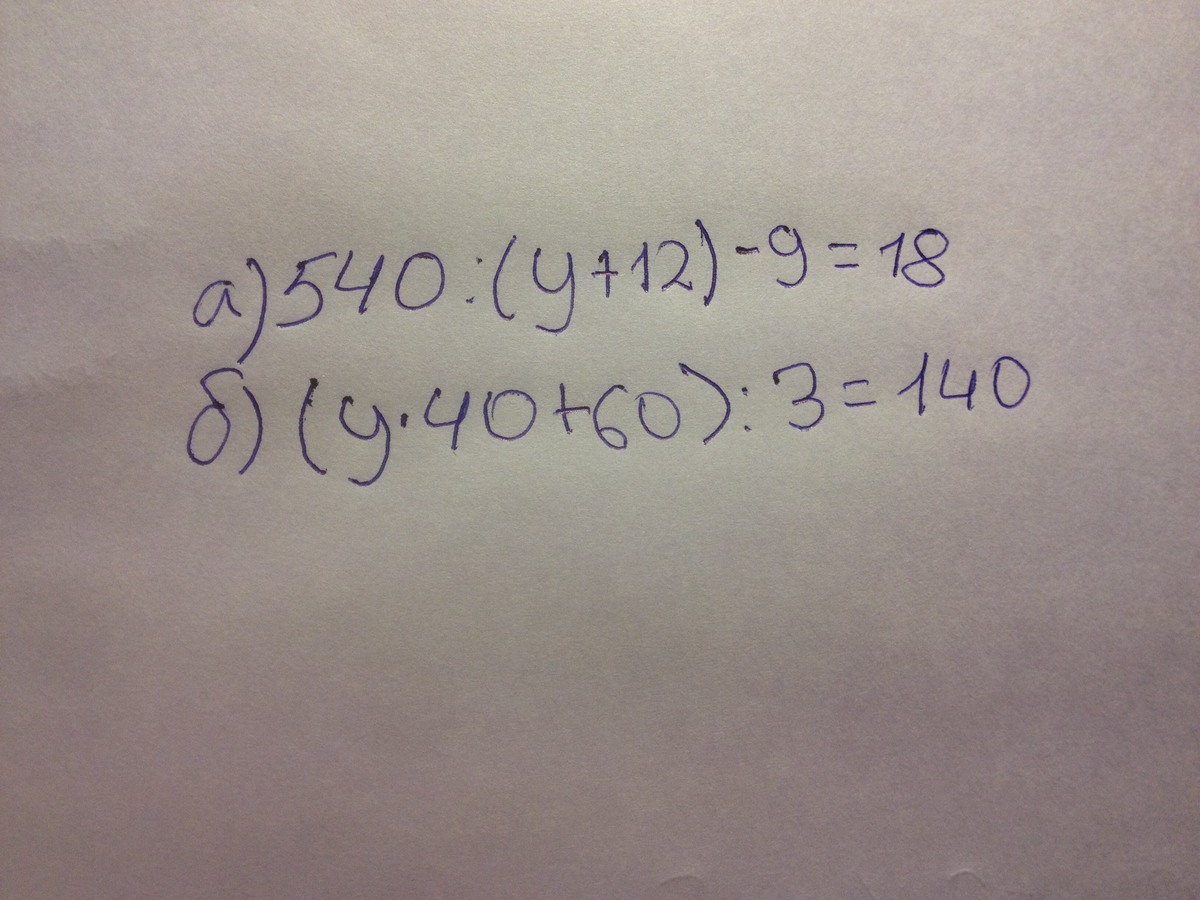 а) 540 : (y + 12) - 9 = 18
б) (y · 40 + 60) : 3 = 140